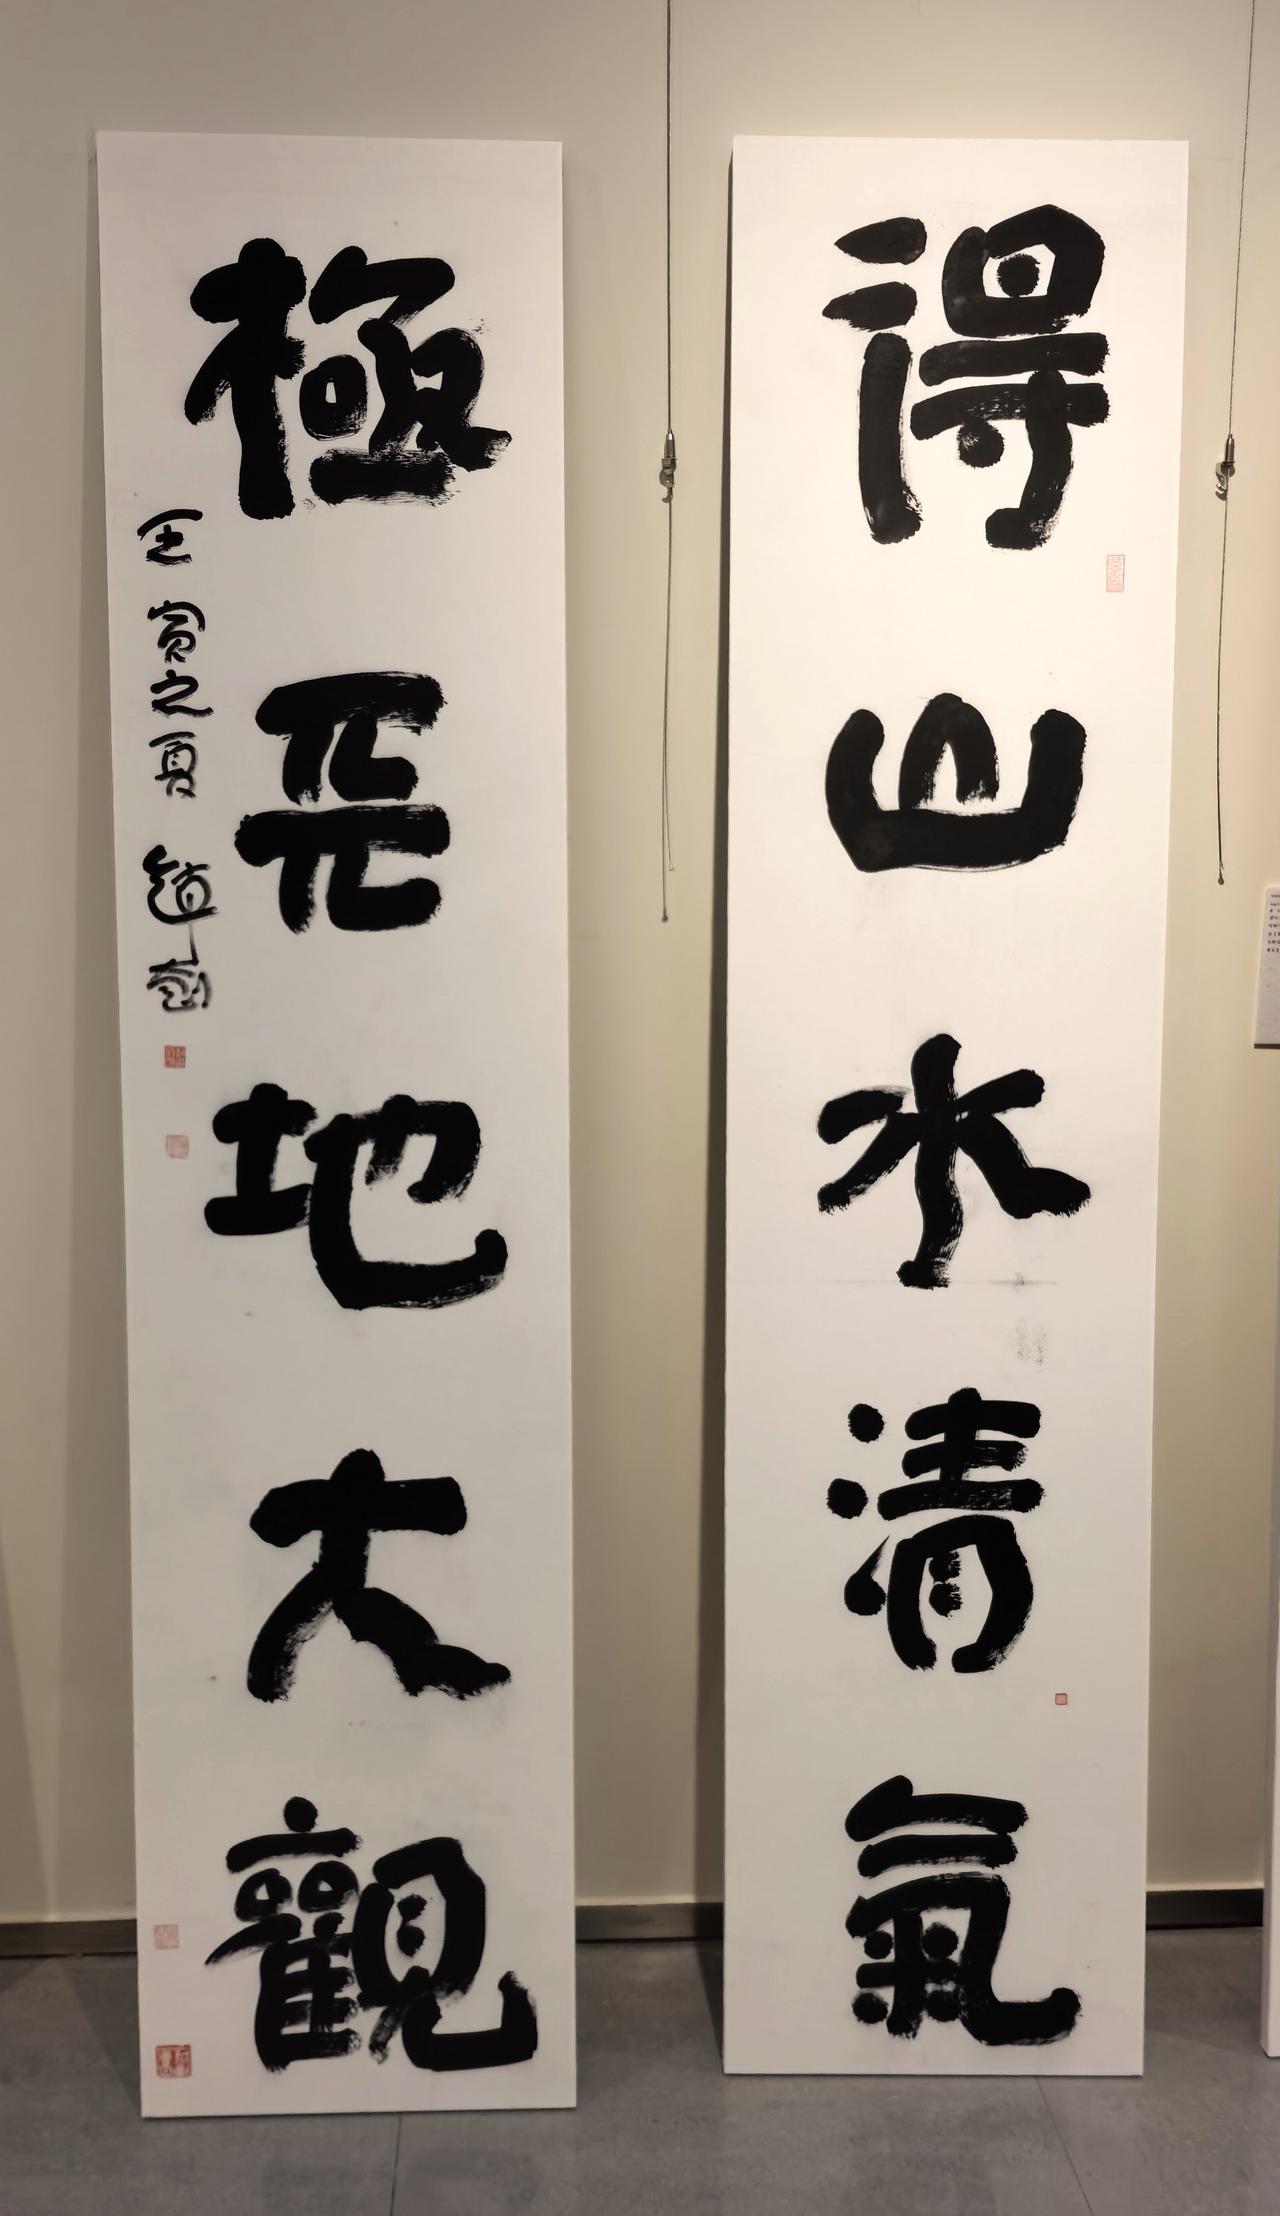 得山水清氣
極天地大觀
壬寅之夏